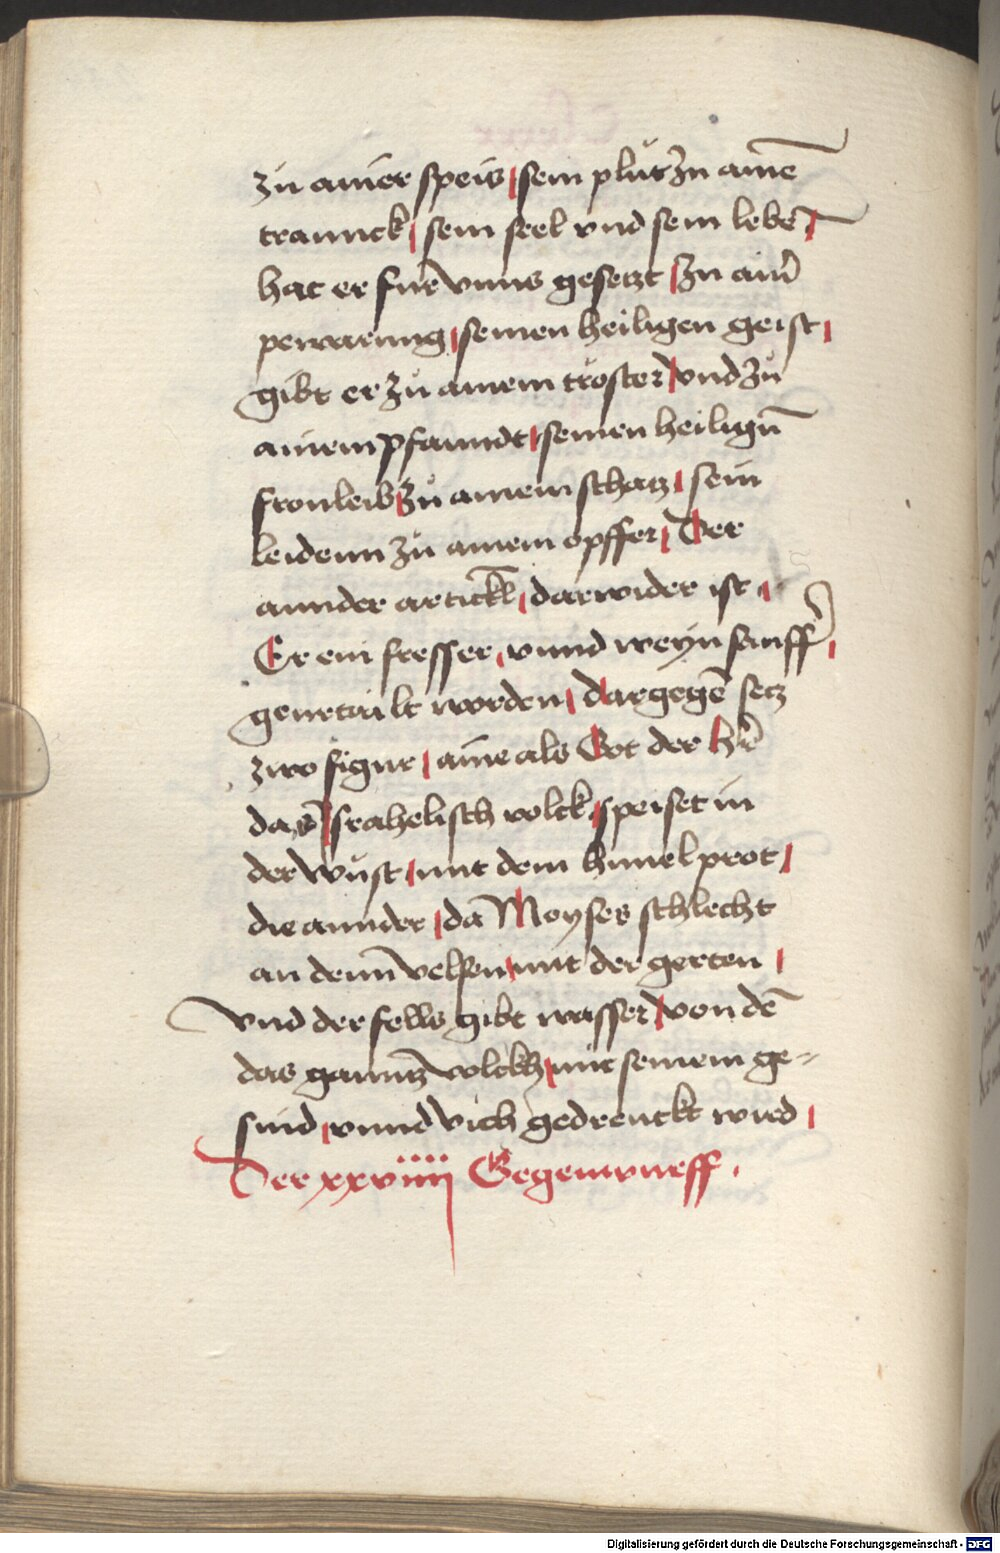 zu ainer speis / sein plut zu aine͂
trannck / sein seel vnd sein lebe͂ /
hat er fur vnns gesetzt / zu ain͂
pewarung / seinen heiligen geist /
gibt er zů ainem troster / vnd zů
ainem pfanndt / seinen heilign͂
fronleib / zů ainem schatz / sein
leidenn zů ainem opffer / Der
annder artickl͂ / darwider ist /
Er ein fresser / vnnd weyn sauff͂ /
geurtailt worden / dargege͂ setz
zwo figur / aine als Got der h͂r
das Israhelisch volck / speiset in
der wůst / mit dem himel prot /
die annder / da Moyses schlecht
an denn velsen / mit der gerten /
vnd der fells gibt wasser / von de͂
das ganntz volckh / mit seinem ge-
sind / vnnd vich gedrenckt wird /
Der xxviiij Gegenwurff /
Digitalisierung gefördert durch die Deutsche Forschungsgemeinschaft - DFG